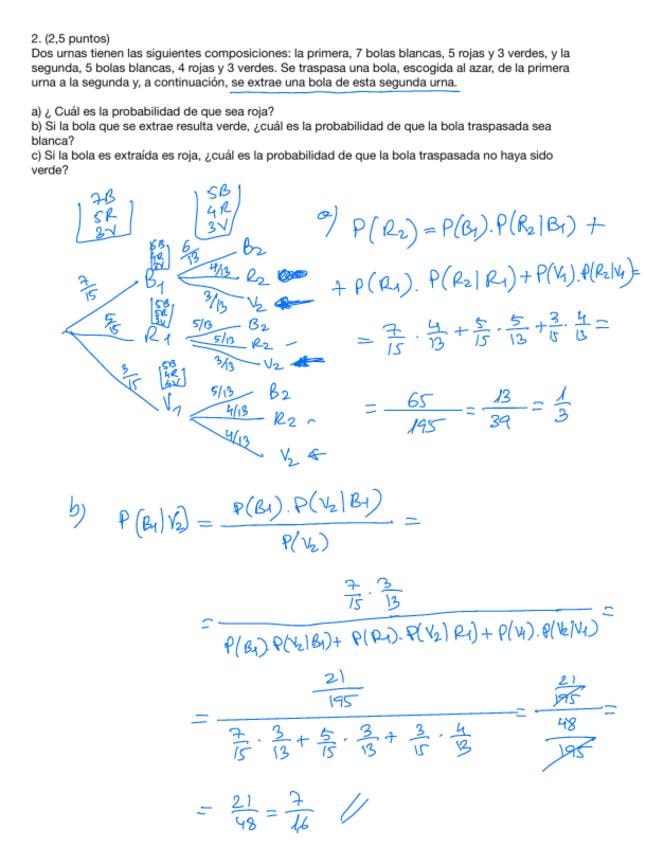 2. (2,5 puntos)
Dos urnas tienen las siguientes composiciones: la primera, 7 bolas blancas, 5 rojas y 3 verdes, y la
segunda, 5 bolas blancas, 4 rojas y 3 verdes. Se traspasa una bola, escogida al azar, de la primera
urna a la segunda y, a continuación, se extrae una bola de esta segunda urna.
a) ¿ Cuál es la probabilidad de que sea roja?
b) Si la bola que se extrae resulta verde, ¿cuál es la probabilidad de que la bola traspasada sea
blanca?
c) Si la bola es extraída es roja, ¿cuál es la probabilidad de que la bola traspasada no haya sido
verde?
7B
5R
3V
5B
4R
3V
7/15 B1
6/13 B2
4/13 R2
3/13 V2
5/15 R1
5B
5R
3V
5/13 B2
5/13 R2
3/13 V2
3/15 V1
5B
4R
4V
5/13 B2
4/13 R2
4/13 V2
a) P(R2) = P(B1).P(R2|B1) +
+ P(R1). P(R2|R1) + P(V1).P(R2|V1) =
= 7/15 . 4/13 + 5/15 . 5/13 + 3/15 . 4/13 =
= 65/195 = 13/39 = 1/3
b) P(B1|V2) = P(B1).P(V2|B1) / P(V2) =
= 7/15 . 3/13 / P(B1).P(V2|B1) + P(R1).P(V2|R1) + P(V1).P(V2|V1) =
= 21/195 / 7/15 . 3/13 + 5/15 . 3/13 + 3/15 . 4/13 = 21/195 / 48/195 =
= 21/48 = 7/16